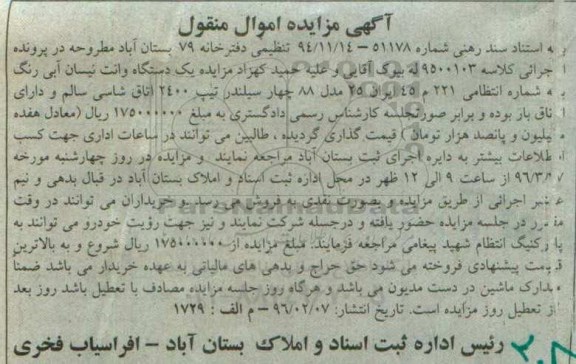 آگهی مزایده اموال منقول
به استناد سند رهنی شماره ۵۱۱۷۸ – ۹۴/۱۱/۱۴ تنظیمی دفترخانه ۷۹ بستان آباد مطروحه در پرونده
اجرائی کلاسه ۹۵۰۰۱۰۳ له بیوک آقایی و علیه حمید کهزاد مزایده یک دستگاه وانت نیسان آبی رنگ
به شماره انتظامی ۲۲۱ م ۴۵ ایران ۲۵ مدل ۸۸ چهار سیلندر تیپ ۲۴۰۰ اتاق شاسی سالم و دارای
اتاق بار بوده و برابر صورتجلسه کارشناس رسمی دادگستری به مبلغ ۱۷۵۰۰۰۰۰۰ ریال (معادل هفده
میلیون و پانصد هزار تومان) قیمت گذاری گردیده ، طالبین می توانند در ساعات اداری جهت کسب
اطلاعات بیشتر به دایره اجرای ثبت بستان آباد مراجعه نمایند و مزایده در روز چهارشنبه مورخه
۹۶/۳/۱۷ از ساعت ۹ الی ۱۲ ظهر در محل اداره ثبت اسناد و املاک بستان آباد در قبال بدهی و نیم
عشر اجرائی از طریق مزایده و بصورت نقدی به فروش می رسد. و خریداران می توانند در وقت
مقرر در جلسه مزایده حضور یافته و درجلسه شرکت نمایند و نیز جهت رؤیت خودرو می توانند به
پارکنیگ انتظام شهید پیغامی مراجعه فرمایند. مبلغ مزایده از ۱۷۵۰۰۰۰۰۰ ریال شروع و به بالاترین
قیمت پیشنهادی فروخته می شود حق حراج و بدهی های مالیاتی به عهده خریدار می باشد ضمنا
مدارک ماشین در دست مدیون می باشد و هرگاه روز جلسه مزایده مصادف با تعطیل باشد روز بعد
از تعطیل روز مزایده است. تاریخ انتشار: ۹۶/۰۲/۰۷ – م الف : ۱۷۲۹
رئیس اداره ثبت اسناد و املاک بستان آباد – افراسیاب فخری